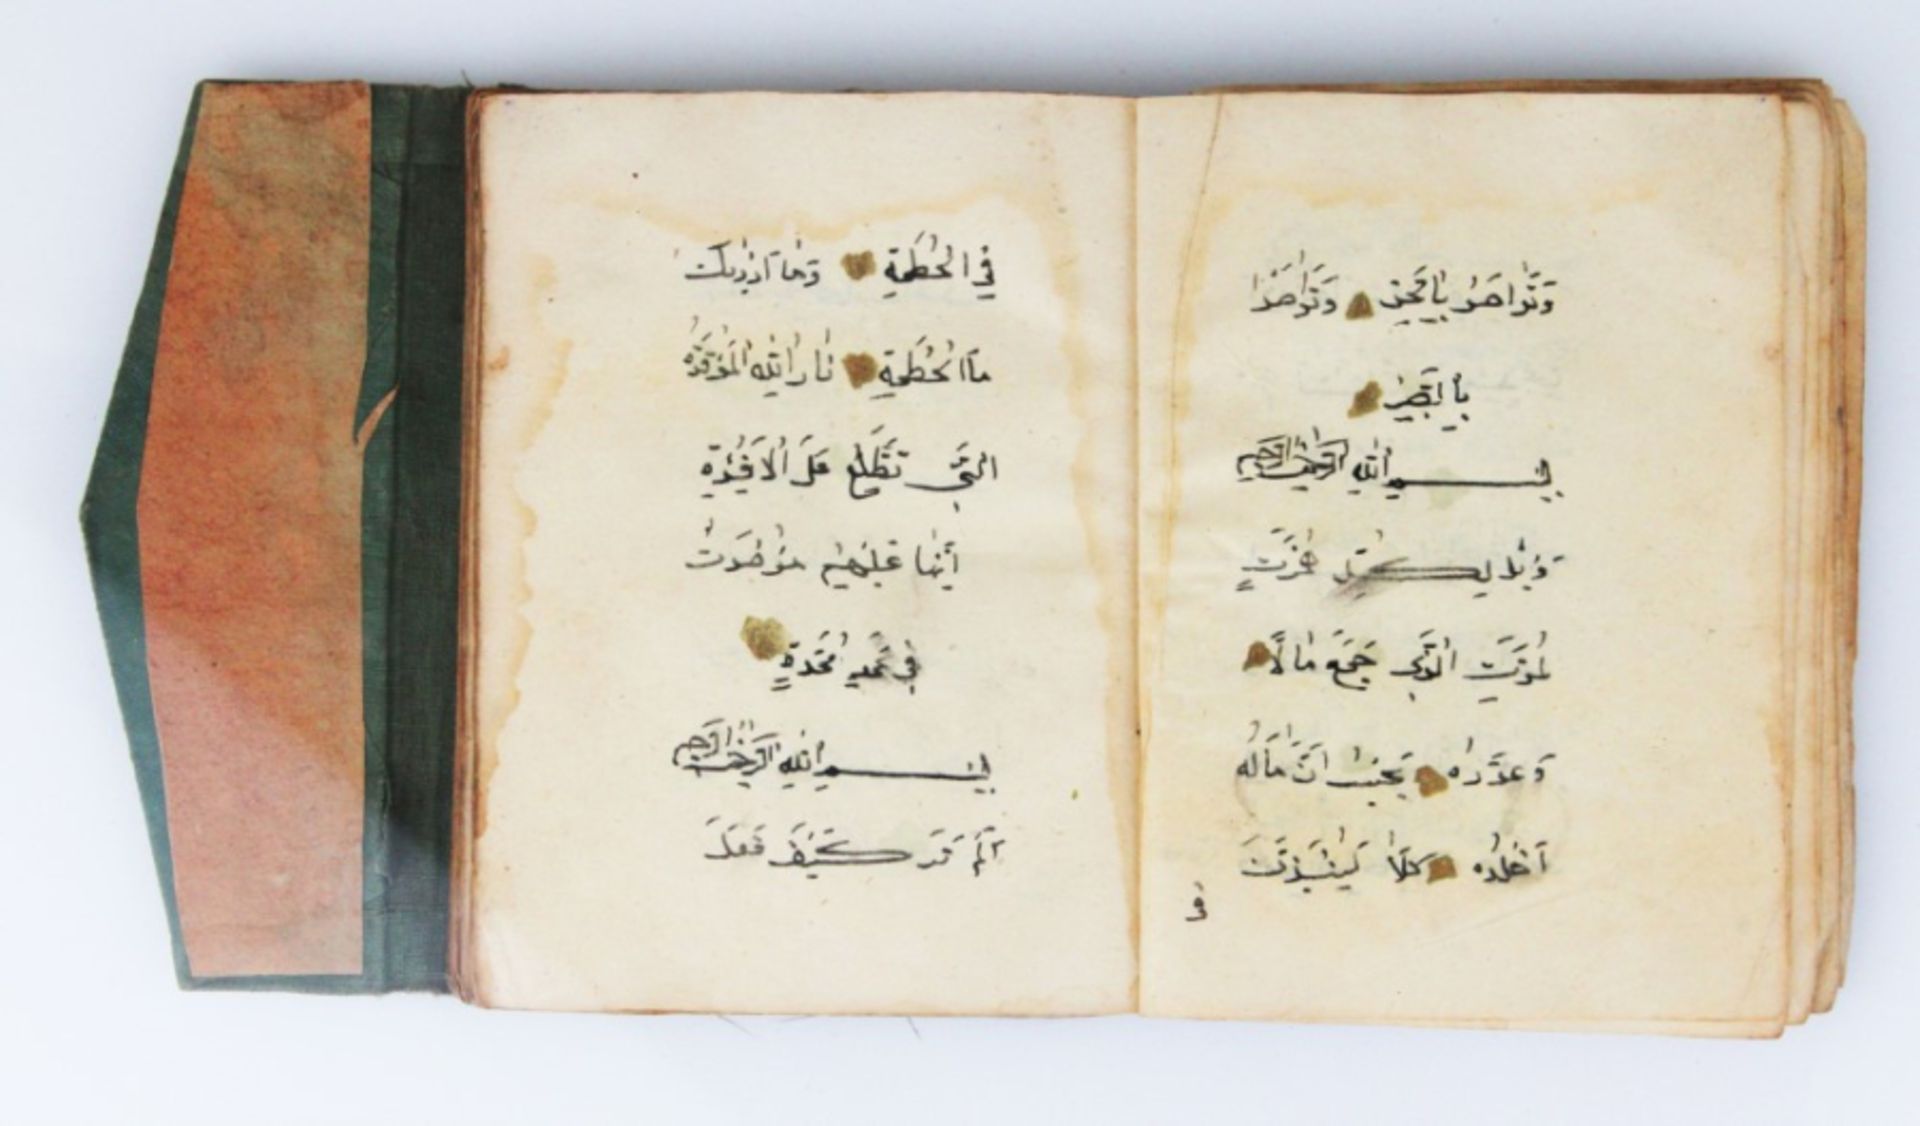 وَتَوَاصَوْ بِالْحَقِّ وَتَوَاصَوْا
بِالصَّبْرِ
بِسْمِ اللهِ الرَّحْمٰنِ الرَّحِيمِ
وَيْلٌ لِكُلِّ هُمَزَةٍ
لُمَزَةٍ الَّذِي جَمَعَ مَالًا
وَعَدَّدَهُ يَحْسَبُ اَنَّ مَالَهُ
اَخْلَدَهُ كَلَّا لَيُنْبَذَنَّ
فِي
فِي الْحُطَمَةِ وَمَا اَدْرٰيكَ
مَا الْحُطَمَةُ نَارُ اللهِ الْمُوقَدَةُ
الَّتِي تَطَّلِعُ عَلَى الْاَفْئِدَةِ
اِنَّهَا عَلَيْهِمْ مُؤْصَدَةٌ
فِي عَمَدٍ مُمَدَّدَةٍ
بِسْمِ اللهِ الرَّحْمٰنِ الرَّحِيمِ
اَلَمْ تَرَ كَيْفَ فَعَلَ